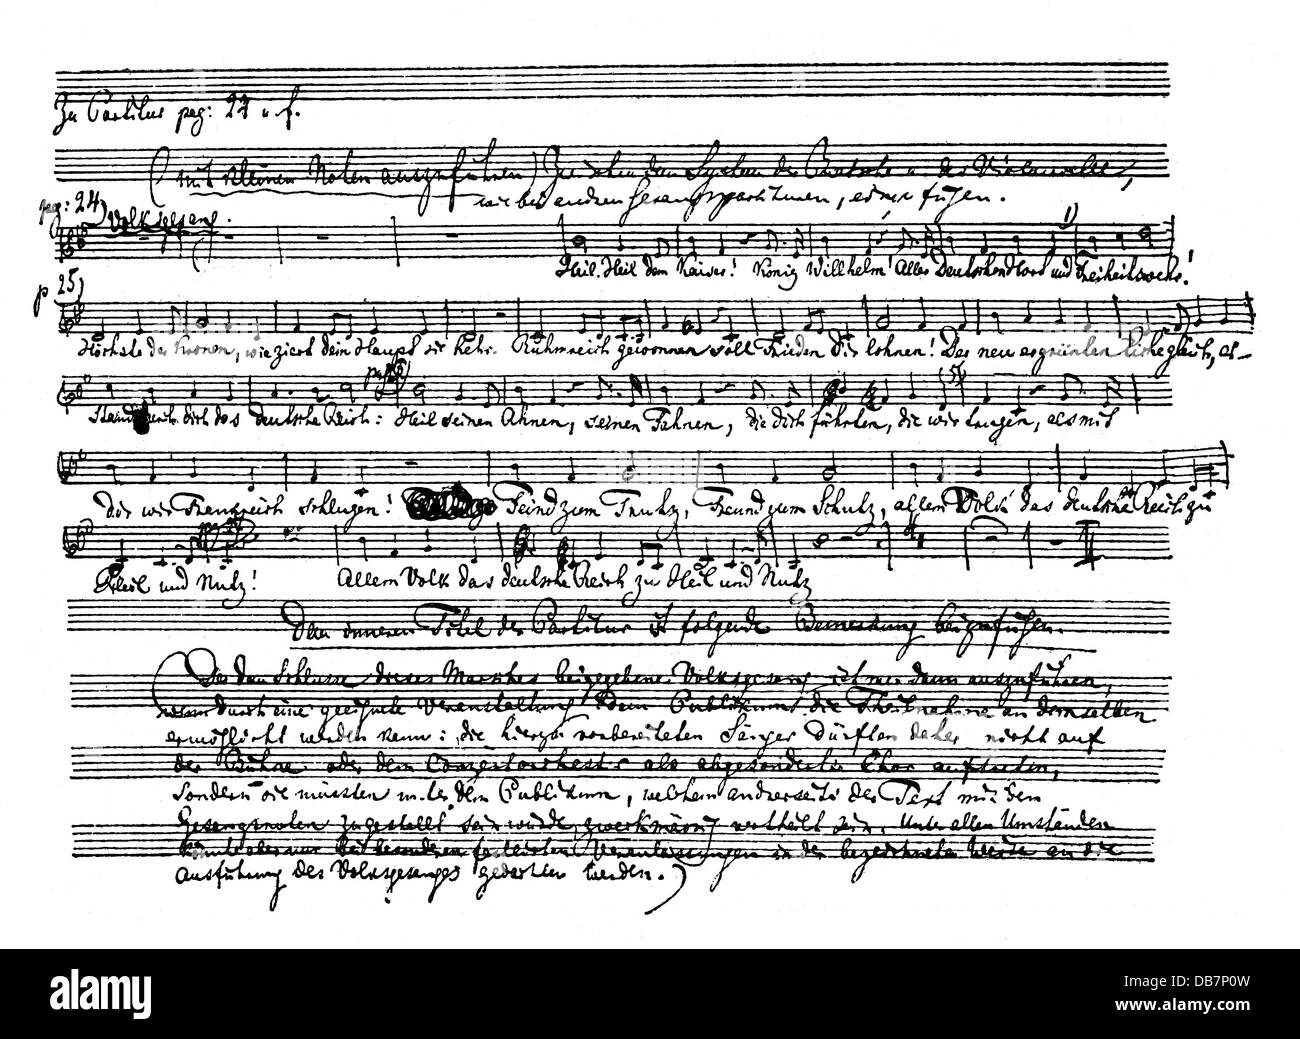 Zu Partitur pag: 24 u. f.
(mit kleinen Noten auszuführen) Zwischen dem System der Bratsche u. der Violoncelle,
wie bei andren Gesangspartituren, einzufügen.
pag: 24)
Volksgesang.
1)
Heil. Heil dem Kaiser! König Willhelm! Aller Deutschen Hort und Freiheitswehr!
p 25)
Höchste der Kronen, wie ziert dein Haupt sie hehr. Ruhmreich gewonnen soll Frieden dir lohnen! Der neu ergrünten Eiche gleich, er-
stand durch dich das deutsche Reich: Heil seinen Ahnen, seinen Fahnen, die dich führten, die wir trugen, als mit
Dir wir Frankreich schlugen! Feind zum Trutz, Freund zum Schutz, allem Volk das deutsche Reich zu
Heil und Nutz! Allem Volk das deutsche Reich zu Heil und Nutz
Dem inneren Titel der Partitur ist folgende Bemerkung beizufügen.
(Der dem Schlusse dieses Marsches beigegebene Volksgesang ist nur dann auszuführen,
wenn durch eine geeignete Veranstaltung dem Publikum die Theilnahme an demselben
ermöglicht werden kann: die hierzu vorbereiteten Sänger dürften daher nicht auf
der Bühne oder dem Conzertorchester als abgesonderter Chor auftreten,
sondern sie müssten unter dem Publikum, welchem andrerseits der Text mit den
Gesangsnoten zugestellt sein würde, zweckmässig vertheilt sein. Unter allen Umständen
könnte aber nur bei besonderen festlichen Veranlassungen in der bezeichneten Weise an die
Ausführung des Volksgesanges gedacht werden.)
alamy
Image ID: DB7P0W
www.alamy.com